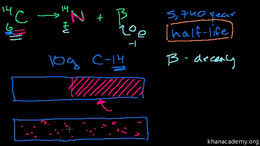 ¹⁴₆C → ¹⁴₇N + β ⁰₋₁e
5,740 year
half-life
10g C-14
β-decay
khanacademy.org